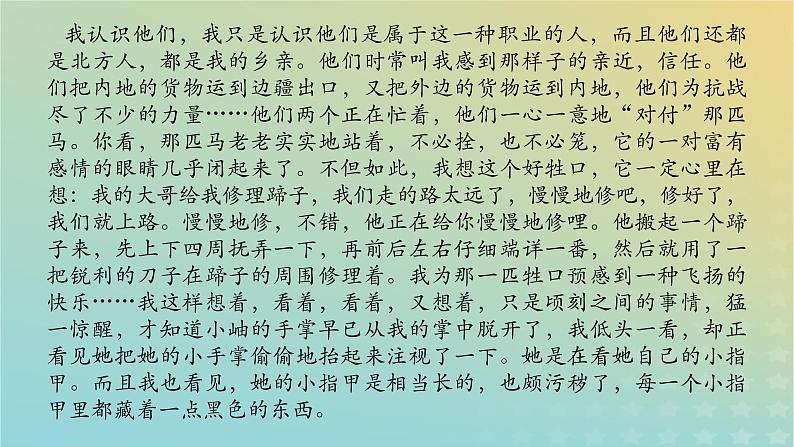 我认识他们，我只是认识他们是属于这一种职业的人，而且他们还都
是北方人，都是我的乡亲。他们时常叫我感到那样子的亲近，信任。他
们把内地的货物运到边疆出口，又把外边的货物运到内地，他们为抗战
尽了不少的力量……他们两个正在忙着，他们一心一意地“对付”那匹
马。你看，那匹马老老实实地站着，不必拴，也不必笼，它的一对富有
感情的眼睛几乎闭起来了。不但如此，我想这个好牲口，它一定心里在
想：我的大哥给我修理蹄子，我们走的路太远了，慢慢地修吧，修好了，
我们就上路。慢慢地修，不错，他正在给你慢慢地修哩。他搬起一个蹄
子来，先上下四周抚弄一下，再前后左右仔细端详一番，然后就用了一
把锐利的刀子在蹄子的周围修理着。我为那一匹牲口预感到一种飞扬的
快乐……我这样想着，看着，看着，又想着，只是顷刻之间的事情，猛
一惊醒，才知道小岫的手掌早已从我的掌中脱开了，我低头一看，却正
看见她把她的小手掌偷偷地抬起来注视了一下。她是在看她自己的小指
甲。而且我也看见，她的小指甲是相当长的，也颇污秽了，每一个小指
甲里都藏着一点黑色的东西。